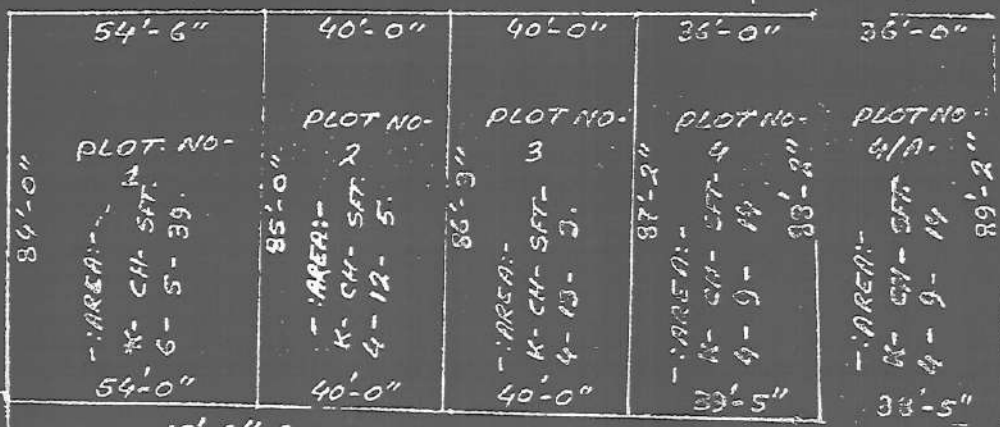 54'-6"
40'-0"
40'-0"
36'-0"
36'-0"
84'-0"
PLOT. NO-
1
-:AREA:-
K- CH- SFT.
6- 5- 39.
54'-0"
85'-0"
PLOT NO-
2
-:AREA:-
K- CH- SFT.
4- 12- 5.
40'-0"
86'-3"
PLOT NO-
3
-:AREA:-
K- CH- SFT-
4- 13- 3.
40'-0"
87'-2"
PLOT NO-
4
-:AREA:-
K- CH- SFT-
4- 9- 14
39'-5"
88'-2"
PLOT NO-
4/A.
-:AREA:-
K- CH- SFT.
4- 9- 14
38'-5"
89'-2"